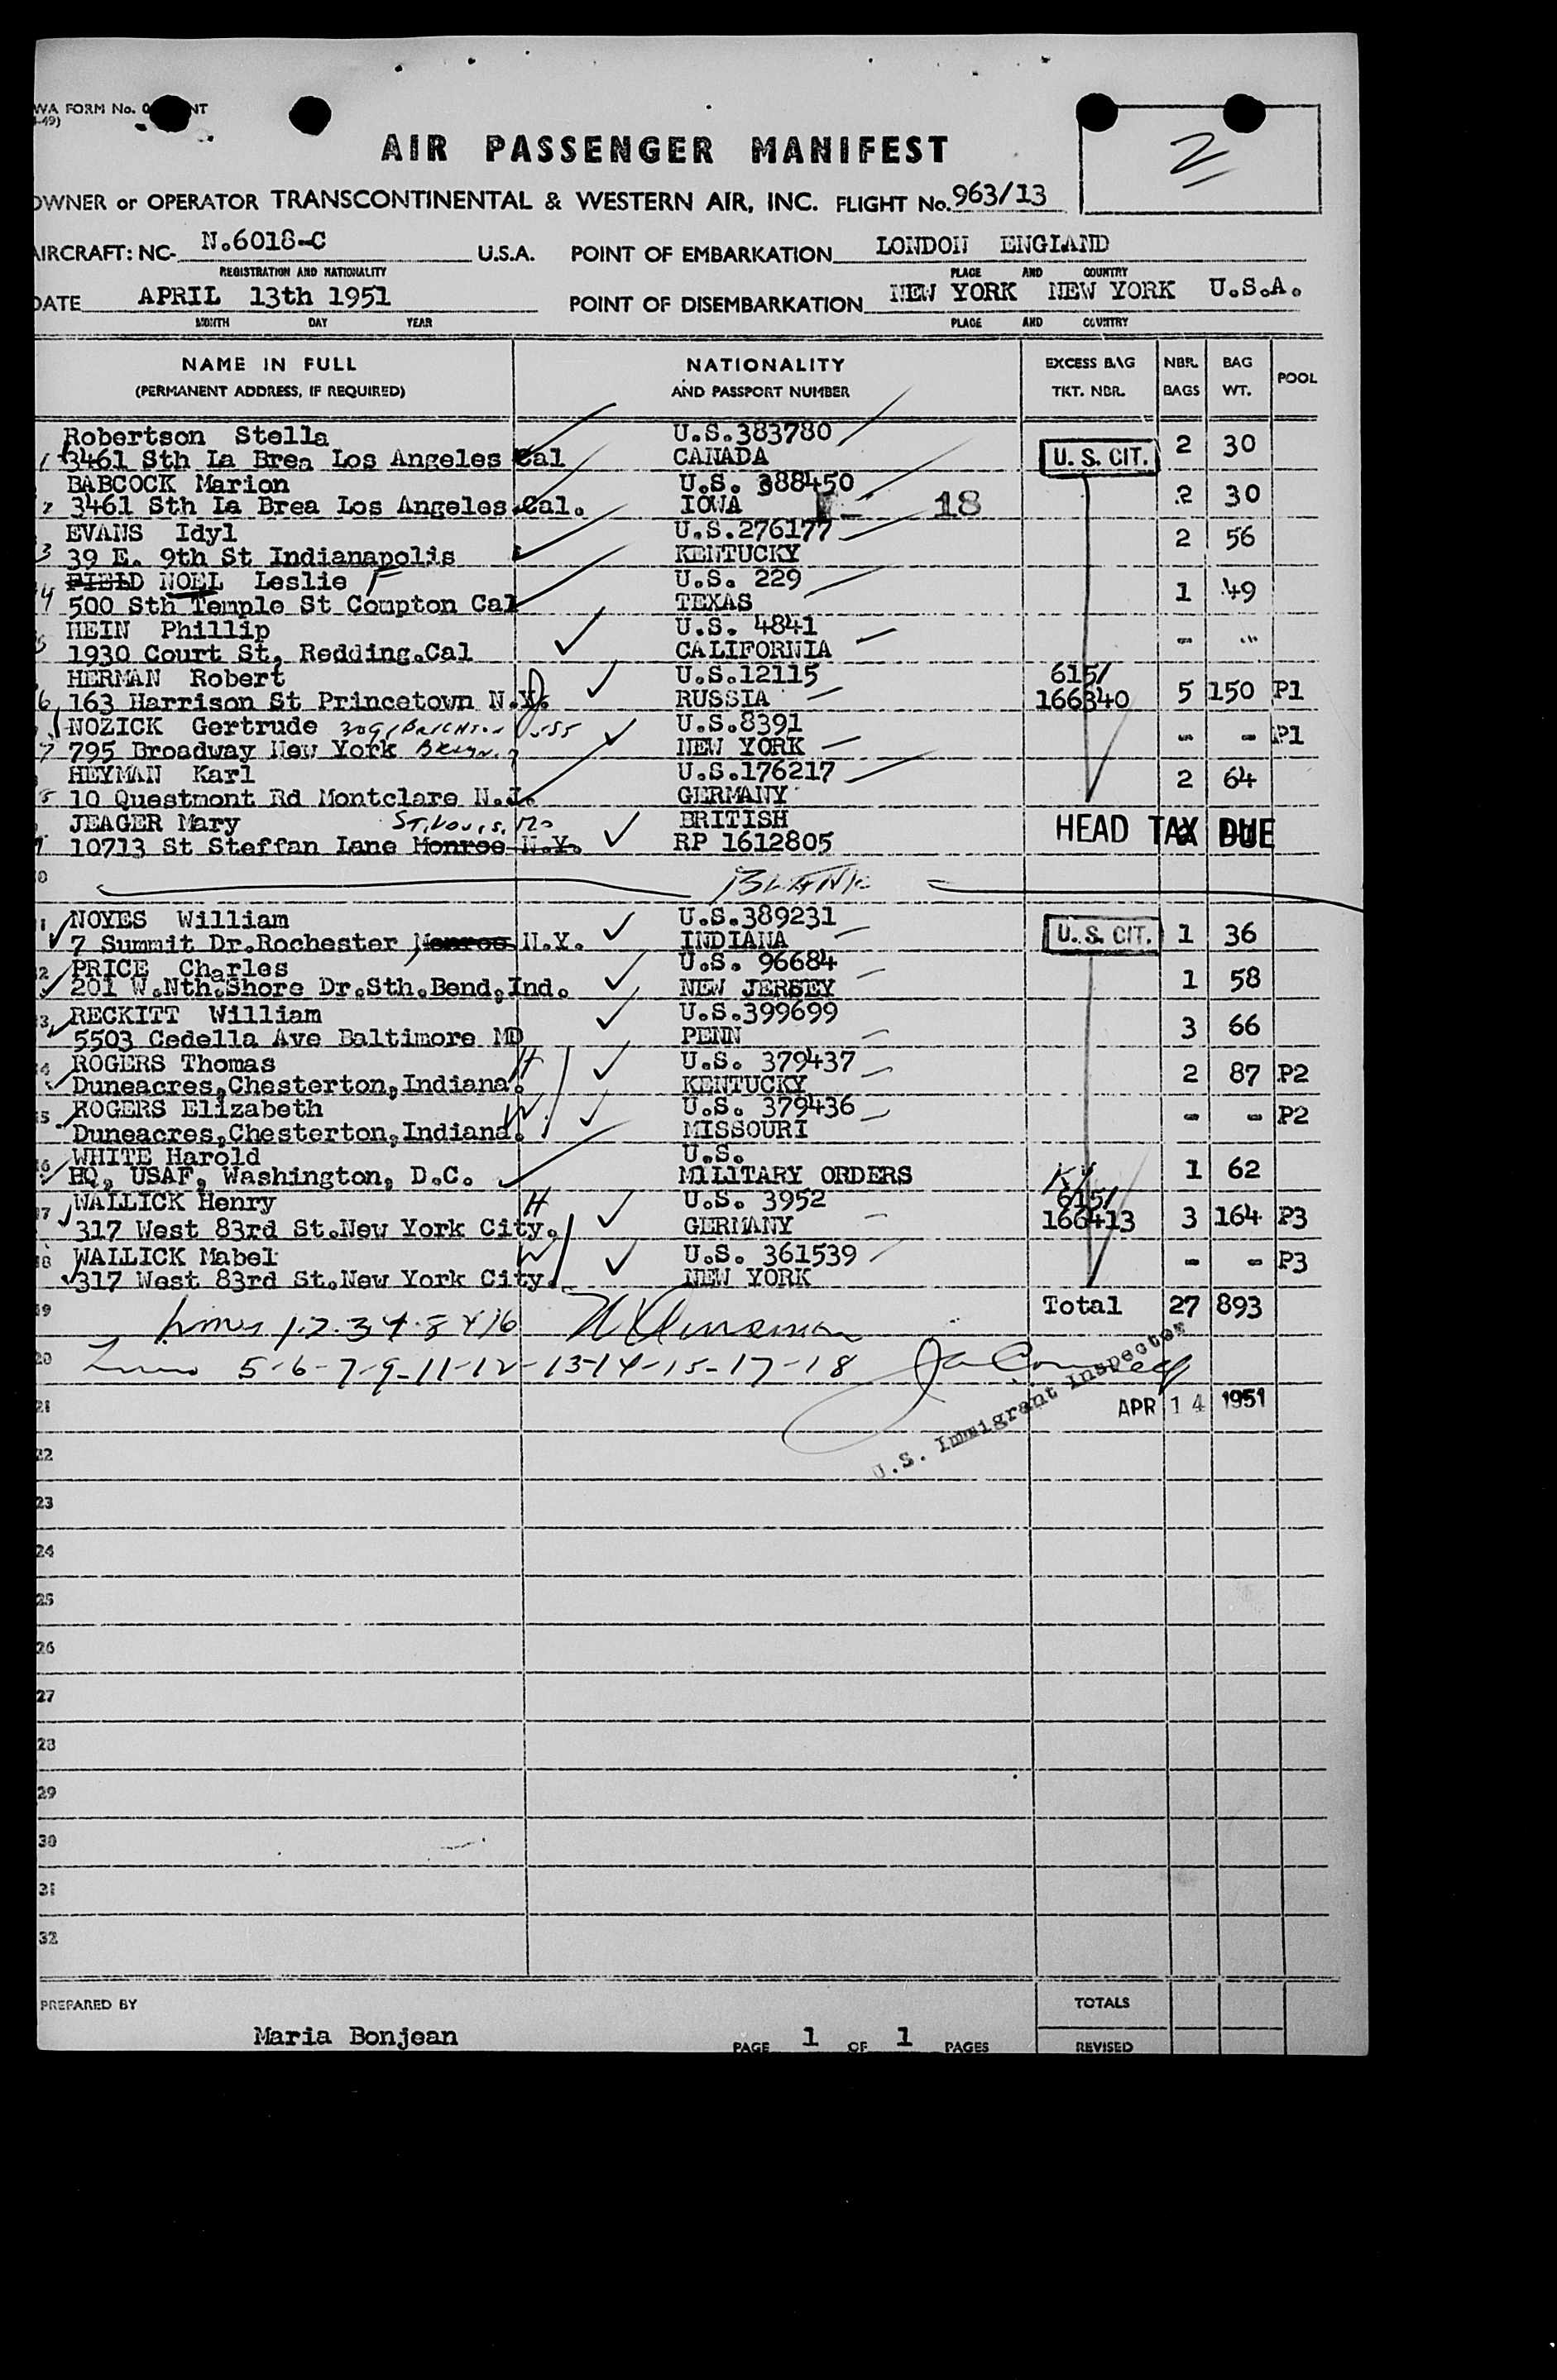 WA FORM No. 0 NT
-49)
AIR PASSENGER MANIFEST
2
OWNER or OPERATOR TRANSCONTINENTAL & WESTERN AIR, INC. FLIGHT No. 963/13
AIRCRAFT: NC- N.6018-C U.S.A. POINT OF EMBARKATION LONDON ENGLAND
REGISTRATION AND NATIONALITY PLACE AND COUNTRY
DATE APRIL 13th 1951 POINT OF DISEMBARKATION NEW YORK NEW YORK U.S.A.
MONTH DAY YEAR PLACE AND COUNTRY
NAME IN FULL NATIONALITY EXCESS BAG NBR. BAG POOL
(PERMANENT ADDRESS, IF REQUIRED) AND PASSPORT NUMBER TKT. NBR. BAGS WT.
Robertson Stella U.S.383780 2 30
1 3461 Sth La Brea Los Angeles Cal CANADA U. S. CIT.
BABCOCK Marion U.S. 388450 2 30
2 3461 Sth La Brea Los Angeles Cal. IOWA 18
EVANS Idyl U.S.276177 2 56
3 39 E. 9th St Indianapolis KENTUCKY
FIELD NOEL Leslie F U.S. 229 1 49
4 500 Sth Temple St Compton Cal TEXAS
HEIN Phillip U.S. 4841 - -
5 1930 Court St, Redding.Cal CALIFORNIA
HERMAN Robert U.S.12115 615/ 5 150 P1
6 163 Harrison St Princetown N.Y. RUSSIA 166340
NOZICK Gertrude U.S.8391 - - P1
7 795 Broadway New York NEW YORK
HEYMAN Karl U.S.176217 2 64
8 10 Questmont Rd Montclare N.J. GERMANY
JEAGER Mary St. Louis, Mo BRITISH HEAD TAX DUE
9 10713 St Steffan Lane Monroe N.Y. RP 1612805
0 BLANK
1 NOYES William U.S.389231 U. S. CIT. 1 36
7 Summit Dr.Rochester Monroe N.Y. INDIANA
2 PRICE Charles U.S. 96684 1 58
201 W.Nth.Shore Dr.Sth.Bend,Ind. NEW JERSEY
3 RECKITT William U.S.399699 3 66
5503 Cedella Ave Baltimore MD PENN
4 ROGERS Thomas H U.S. 379437 2 87 P2
Duneacres,Chesterton,Indiana. KENTUCKY
5 ROGERS Elizabeth W. U.S. 379436 - - P2
Duneacres,Chesterton,Indiana. MISSOURI
6 WHITE Harold U.S. 1 62
HQ, USAF, Washington, D.C. MILITARY ORDERS
7 WALLICK Henry H U.S. 3952 615/ 3 164 P3
317 West 83rd St.New York City. GERMANY 166413
8 WALLICK Mabel W U.S. 361539 - - P3
317 West 83rd St.New York City. NEW YORK
19 Lines 1.2.3 4.8 & 16 Total 27 893
20 Lines 5-6-7-9-11-12-13-14-15-17-18
U.S. Immigrant Inspector
21 APR 14 1951
22
23
24
25
26
27
28
29
30
31
32
PREPARED BY TOTALS
Maria Bonjean PAGE 1 OF 1 PAGES REVISED